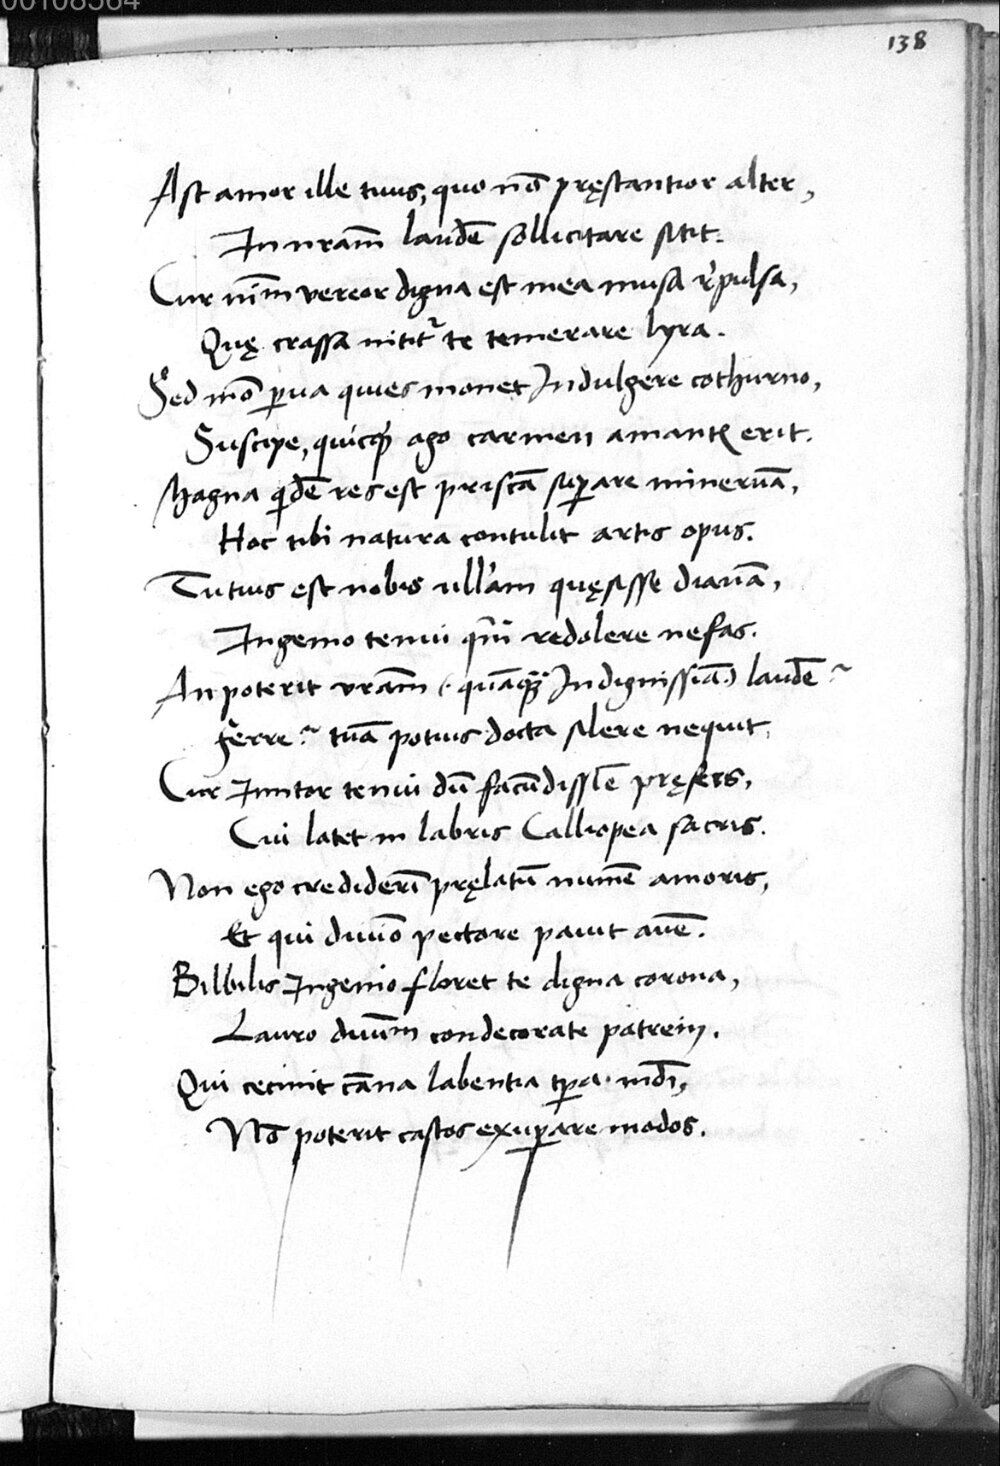 00108564
138
Ast amor ille tuus, quo nō pręstantior alter,
In nr̄am laudē sollicitare sitit.
Cur nīm vereor digna est mea musa rępulsa,
Quę crassa nitit᷑ te temerare lyra.
Sed mō ꝑua quies monet Indulgere cothurno,
Suscipe, quicq̄ ago carmen amantꝭ erit.
Magna q̇dē res est priscā suꝑare mineruā,
Hoc tibi natura contulit artis opus.
Tutius est nobis ullam quęsisse dianā,
Ingenio tenui redolere nefas.
An poterit vr̄am (quāq̄ Indignissiā) laudē?
Ferre? tuā potius docta silere nequit,
Cur Innitor tenui dū facūdissīe pręfers,
Cui latet in labris Calliopea sacris.
Non ego crediderī pręlatū numē amoris,
Et qui diuīo pectore pauit auē.
Bilbilis Ingenio floret te digna corona,
Lauro diuūm condecorate patrem.
Qui cecinit cāna labentia tꝑa mūdi,
Nō poterit castos exuꝑare modos.